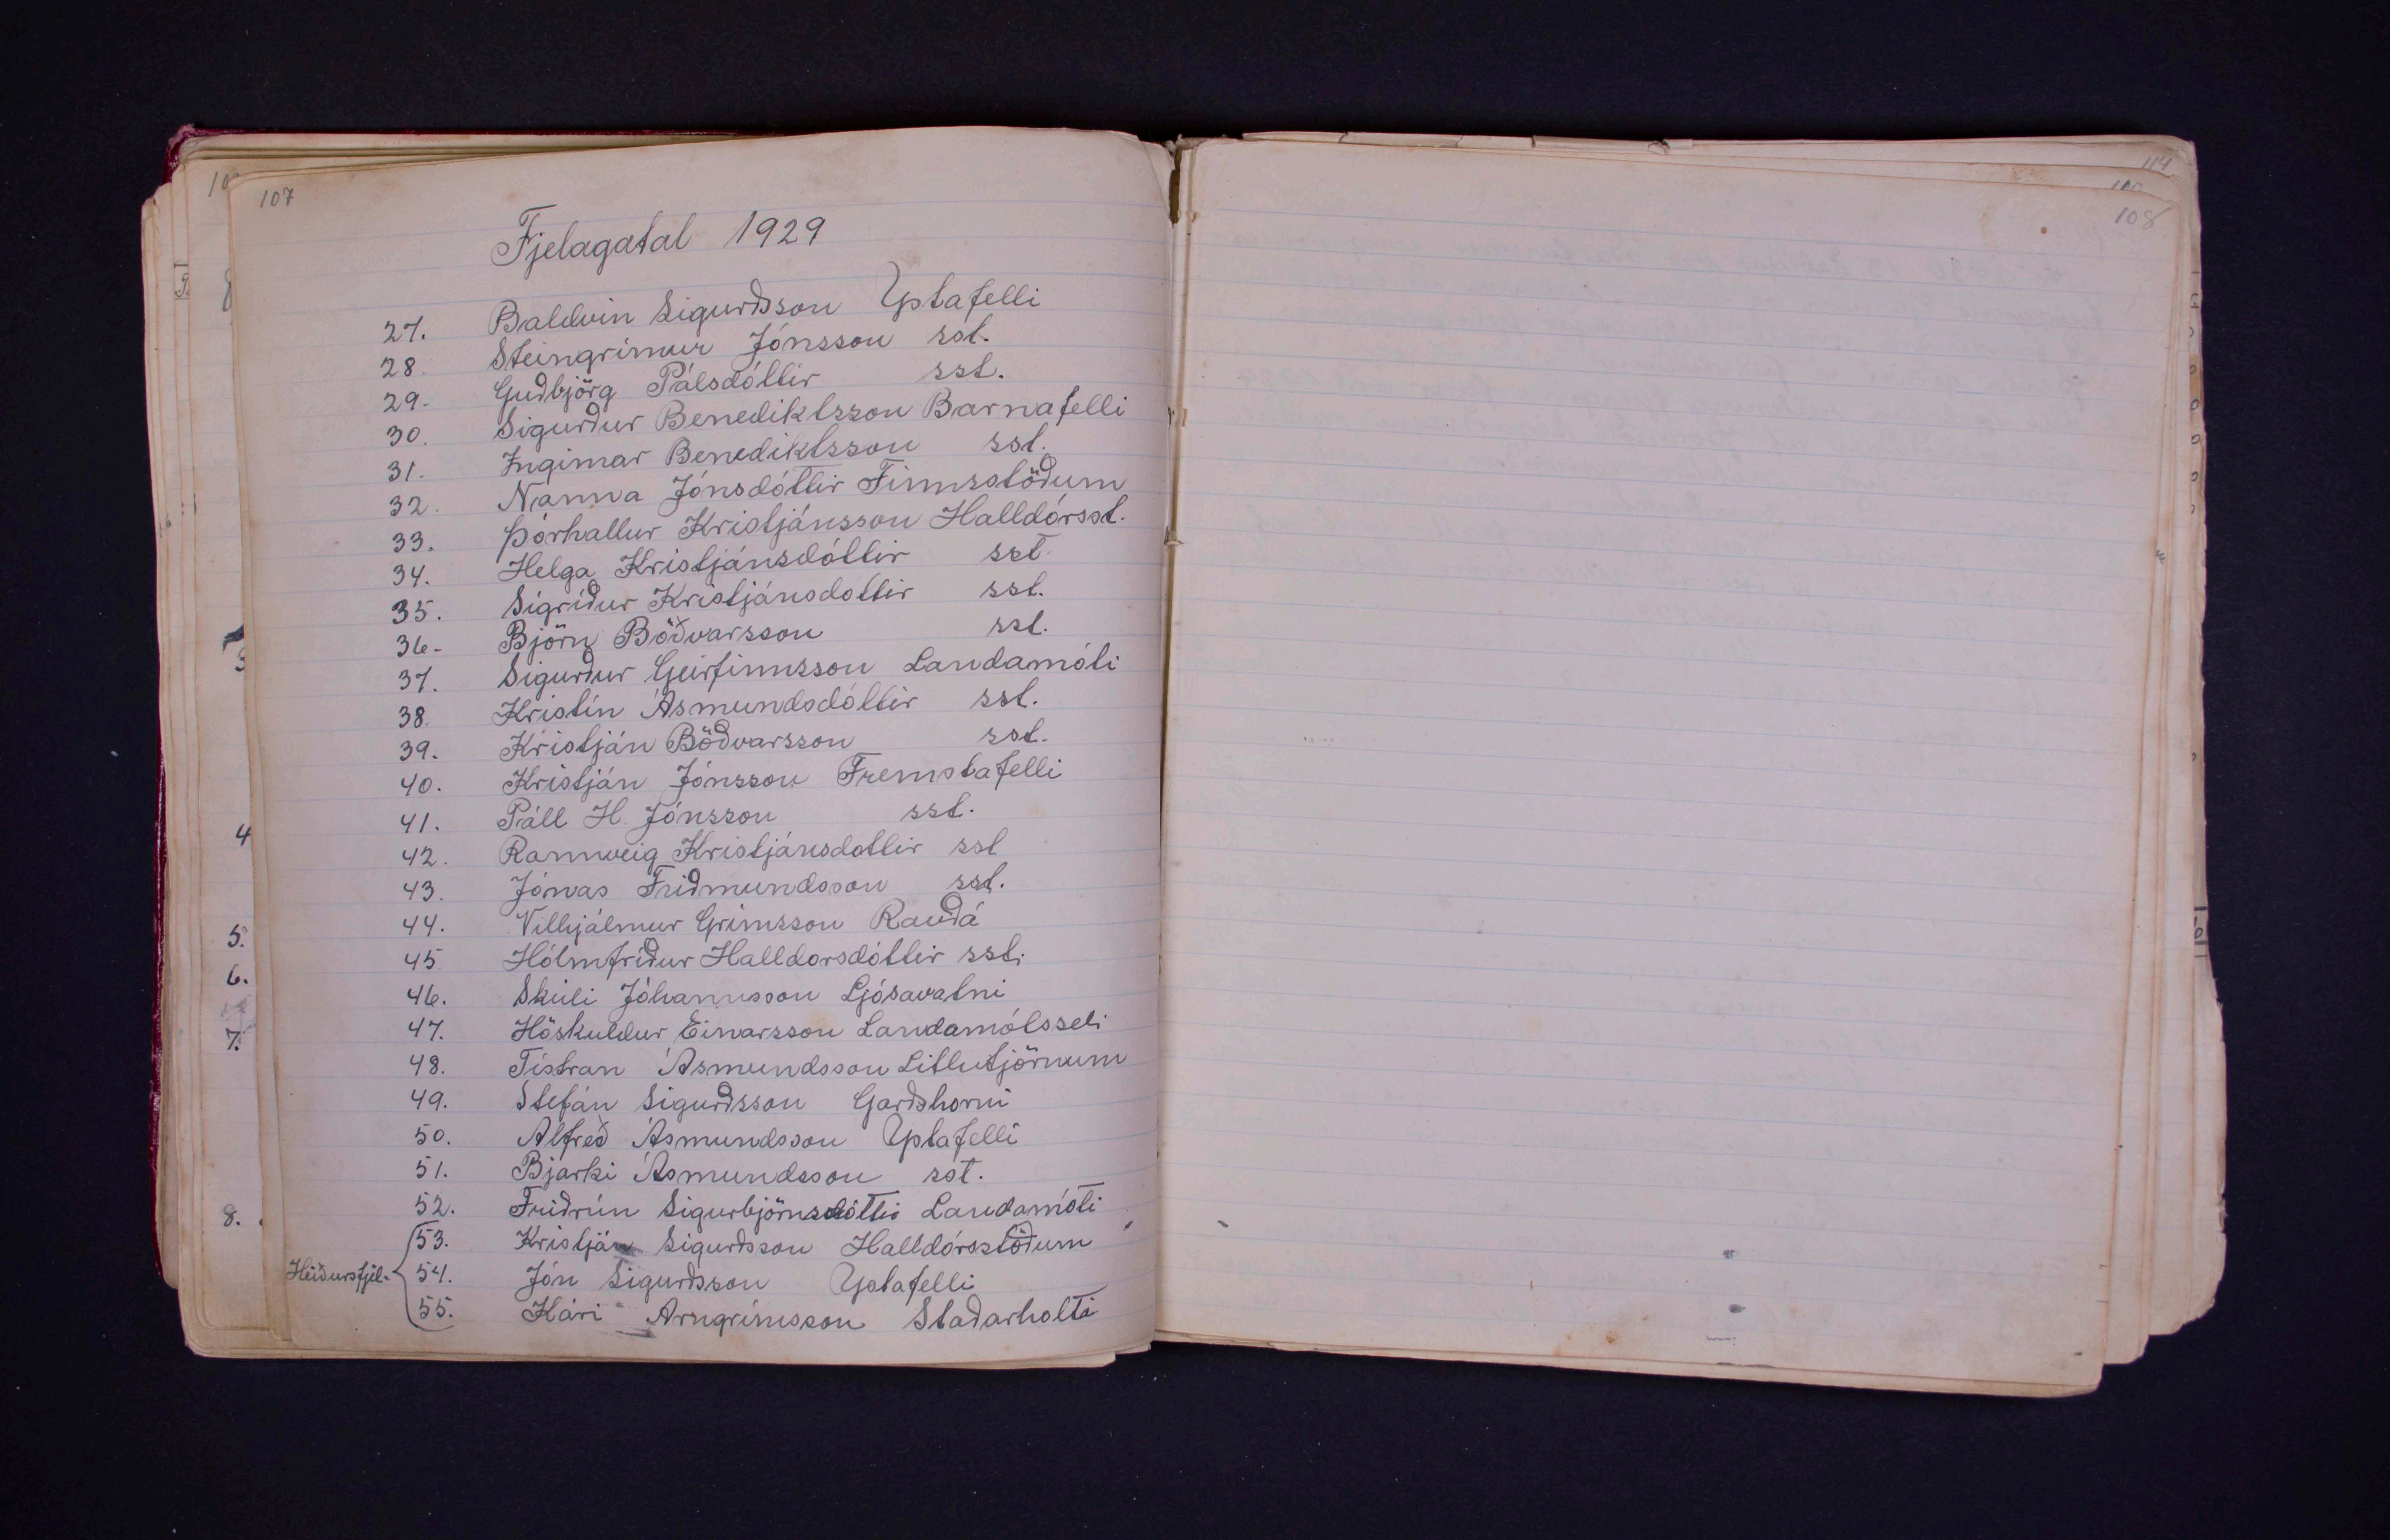 107
Fjelagatal 1929
27. Baldvin Sigurðsson Ystafelli
28. Steingrímur Jónsson sst.
29. Guðbjörg Pálsdóttir sst.
30. Sigurður Benediktsson Barnafelli
31. Ingimar Benediktsson sst.
32. Nanna Jónsdóttir Finnsstöðum
33. Þórhallur Kristjánsson Halldórsst.
34. Helga Kristjánsdóttir sst
35. Sigríður Kristjánsdottir sst.
36. Björn Böðvarsson sst.
37. Sigurður Geirfinnsson Landamóti
38. Kristín Ásmundsdóttir sst.
39. Kristján Böðvarsson sst.
40. Kristján Jónsson Fremstafelli
41. Páll H. Jónsson sst.
42. Rannveig Kristjánsdottir sst
43. Jónas Friðmundsson sst.
44. Vilhjálmur Grímsson Rauðá
45 Hólmfríður Halldorsdóttir sst.
46. Skúli Jóhannsson Ljósavatni
47. Höskuldur Einarsson Landamótsseli
48. Tístran Ásmundsson Litlutjörnum
49. Stefán Sigurðsson Garðshorni
50. Alfreð Ásmundsson Ystafelli
51. Bjarki Ásmundsson sst.
52. Friðrún Sigurbjörnsdóttir Landamóti
53. Kristján Sigurðsson Halldórsstöðum
Heiðursfjel. 54. Jón Sigurðsson Ystafelli
55. Kári Arngrímsson Staðarholti
4
5.
6.
7.
8.
114
108